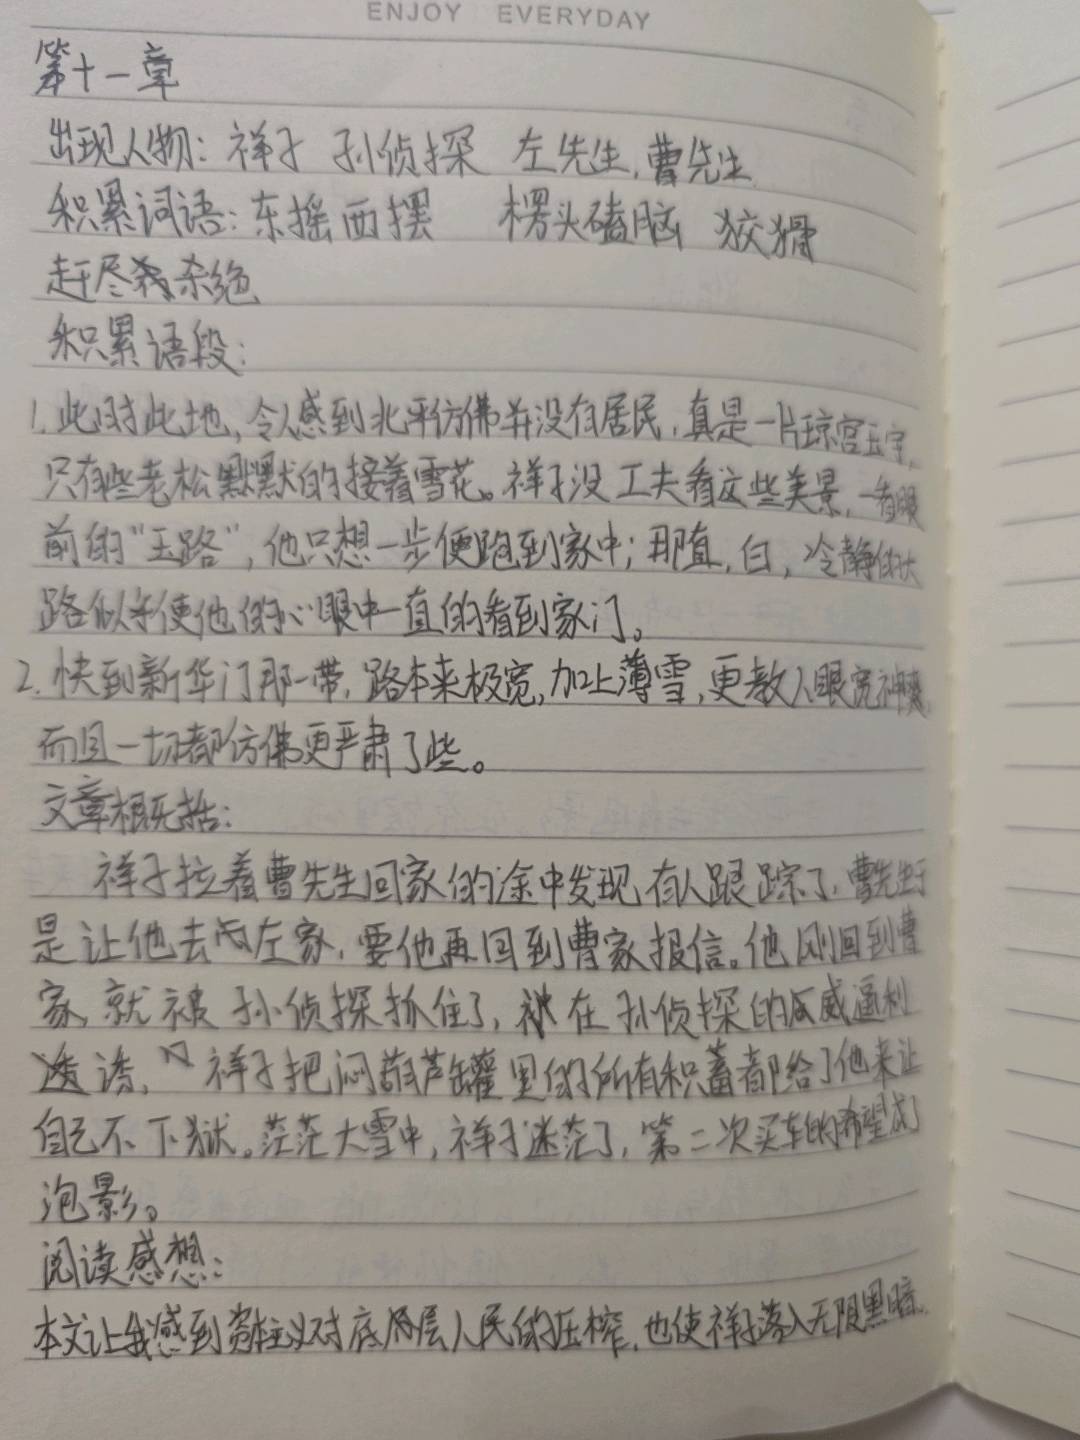 ENJOY EVERYDAY
第十一章
出现人物：祥子 孙侦探 左先生，曹先生
积累词语：东摇西摆 楞头磕脑 狡猾
赶尽杀绝
积累语段：
1.此时此地，令人感到北平仿佛并没有居民，真是一片琼宫玉宇，
只有些老松默默的接着雪花。祥子没工夫看这些美景，一看眼
前的“玉路”，他只想一步便跑到家中；那直，白，冷静的大
路似乎使他的心眼中一直的看到家门。
2.快到新华门那一带，路本来极宽，加上薄雪，更教人眼宽神爽，
而且一切都仿佛更严肃了些。
文章概括：
祥子拉着曹先生回家的途中发现有人跟踪了，曹先生于
是让他去左家，要他再回到曹家报信。他刚回到曹
家，就被孙侦探抓住了，在孙侦探的威逼利
诱，祥子把闷葫芦罐里的所有积蓄都给了他来让
自己不下狱。茫茫大雪中，祥子迷茫了，第二次买车的希望成了
泡影。
阅读感想：
本文让我感到资本主义对底层人民的压榨，也使祥子落入无限黑暗